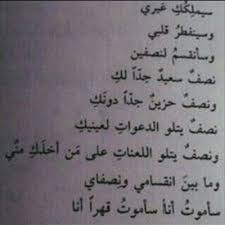 سيملِكُكِ غيري
وسينفطرُ قلبي
وسأنقسمُ لنصفين
نصفٌ سعيدٌ جدّاً لكِ
ونصفٌ حزينٌ جدّاً دونَكِ
نصفٌ يتلو الدعواتِ لعينيكِ
ونصفٌ يتلو اللعناتِ على مَن أخذَكِ منّي
وما بينَ انقسامي ونِصفاي
سأموتُ أنا سأموتُ قهراً أنا